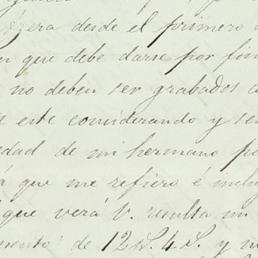 era desde el primero
que debe darse por fin
no deben ser grabados
este considerando y se
edad de mi hermano p
á que me refiero é inclu
que verá V. resulta un
de 12 S. 4 S. y